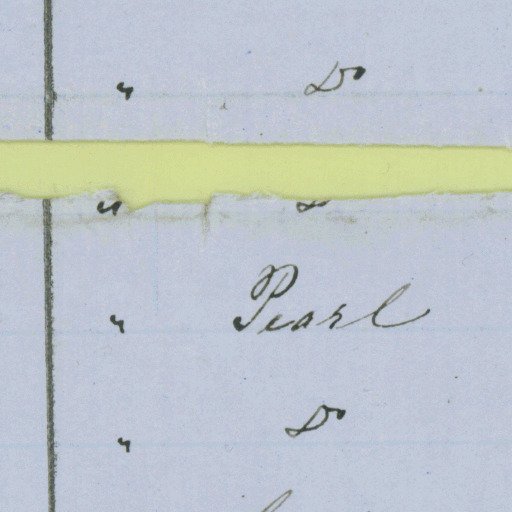 " Do
"
" Pearl
" Do